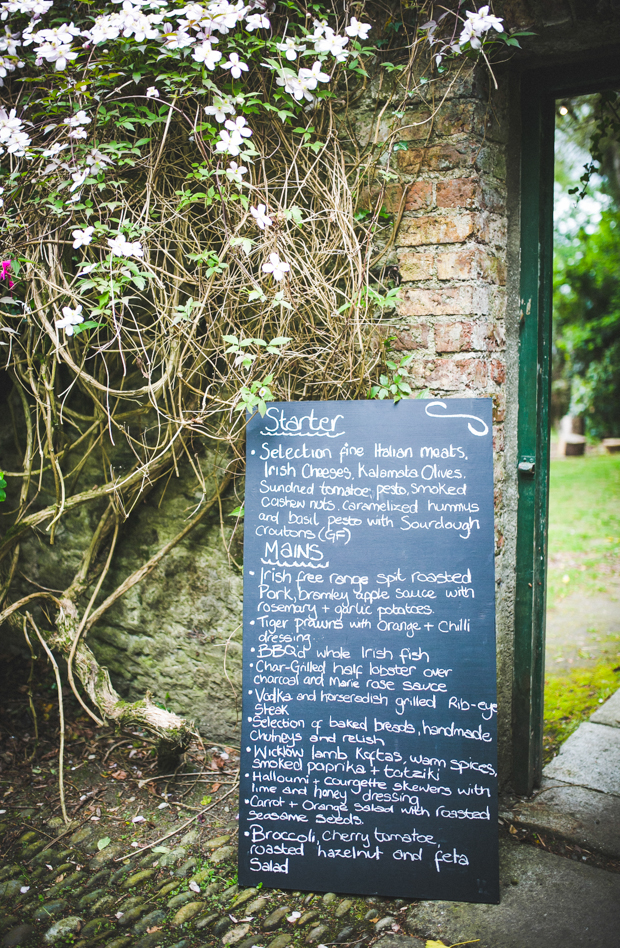 Starter
• Selection fine Italian meats,
Irish Cheeses, Kalamata Olives,
Sundried tomatoe, pesto, smoked
cashew nuts. caramelized hummus
and basil pesto with Sourdough
croutons (GF)
MAINS
• Irish free range spit roasted
Pork, bramley apple sauce with
rosemary + garlic potatoes.
• Tiger prawns with orange + Chilli
dressing.
• BBQ'd whole Irish fish
• Char-Grilled half lobster over
charcoal and Marie rose sauce
• Vodka and horseradish grilled Rib-eye
steak
• Selection of baked breads, handmade
Chutneys and relish
• Wicklow lamb Koftas, warm spices,
smoked paprika + tatziki
• Halloumi + courgette skewers with
lime and honey dressing
• Carrot + Orange salad with roasted
seasame seeds.
• Broccoli, cherry tomatoe,
roasted hazelnut and feta
Salad